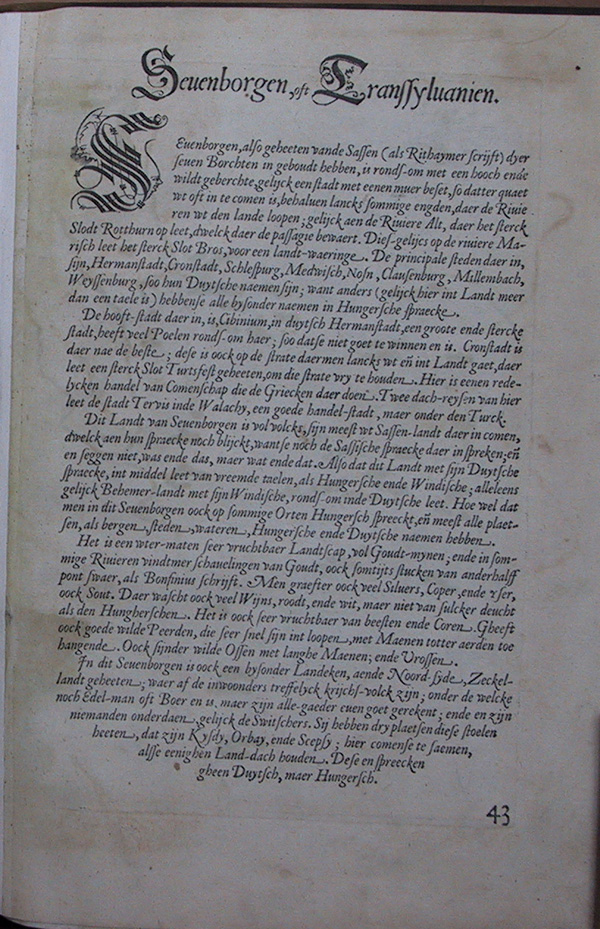 Seuenborgen, oft Transsyluanien.
SEuenborgen, also geheeten vande Sassen (als Rithaymer scrijft) dyer
seuen Borchten in geboudt hebben, is ronds-om met een hooch ende
wildt geberchte, gelijck een stadt met eenen muer beset, so datter quaet
wt oft in te comen is, behaluen lancks sommige engden, daer de Riuie
ren wt den lande loopen; gelijck aen de Riuiere Alt, daer het sterck
Slodt Rotthurn op leet, dwelck daer de passagie bewaert. Dies-gelijcs op de riuiere Ma-
risch leet het sterck Slot Bros, voor een landt-waeringe. De principale steden daer in,
sijn, Hermanstadt, Cronstadt, Schlespurg, Medwisch, Nosn, Clausenburg, Millembach,
Weyssenburg, soo hun Duytsche naemen sijn; want anders (gelijck hier int Landt meer
dan een taele is) hebbense alle bysonder naemen in Hungersche spraecke.
De hooft-stadt daer in, is, Cibinium, in duytsch Hermanstadt, een groote ende stercke
stadt, heeft veel Poelen ronds-om haer; soo datse niet goet te winnen en is. Cronstadt is
daer nae de beste; dese is oock op de strate daermen lancks wt en̄ int Landt gaet, daer
leet een sterck Slot Turtsfest geheeten, om die strate vry te houden. Hier is eenen rede-
lycken handel van Comenschap die de Griecken daer doen. Twee dach-reysen van hier
leet de stadt Tervis inde Walachy, een goede handel-stadt, maer onder den Turck.
Dit Landt van Seuenborgen is vol volcks, sijn meest wt Sassen-landt daer in comen,
dwelck aen hun spraecke noch blijckt, wantse noch de Sassische spraecke daer in spreken; en̄
en seggen niet, was ende das, maer wat ende dat. Also dat dit Landt met sijn Duytsche
spraecke, int middel leet van vreemde taelen, als Hungersche ende Windische; alleleens
gelijck Behemer-landt met sijn Windische, ronds-om inde Duytsche leet. Hoe wel dat
men in dit Seuenborgen oock op sommige Orten Hungersch spreeckt, en̄ meest alle plaet-
sen, als bergen, steden, wateren, Hungersche ende Duytsche naemen hebben.
Het is een wter-maten seer vruchtbaer Landtscap, vol Goudt-mynen; ende in som-
mige Riuieren vindtmer schauelingen van Goudt, oock somtijts stucken van anderhalff
pont swaer, als Bonfinius schrijft. Men graefter oock veel Siluers, Coper, ende yser,
oock Sout. Daer wascht oock veel Wijns, roodt, ende wit, maer niet van sulcker deucht
als den Hungherschen. Het is oock seer vruchtbaer van beesten ende Coren. Gheeft
oock goede wilde Peerden, die seer snel sijn int loopen, met Maenen totter aerden toe
hangende. Oock sijnder wilde Ossen met langhe Maenen; ende Vrossen.
In dit Seuenborgen is oock een bysonder Landeken, aende Noord-syde, Zeckel-
landt geheeten; waer af de inwoonders treffelyck krijchs-volck zijn; onder de welcke
noch Edel-man oft Boer en is, maer zijn alle-gaeder euen goet gerekent; ende en zijn
niemanden onderdaen, gelijck de Switschers. Sij hebben dry plaetsen diese stoelen
heeten, dat zijn Kysdy, Orbay, ende Scepsy; hier comense te saemen,
alsse eenighen Land-dach houden. Dese en spreecken
gheen Duytsch, maer Hungersch.
43